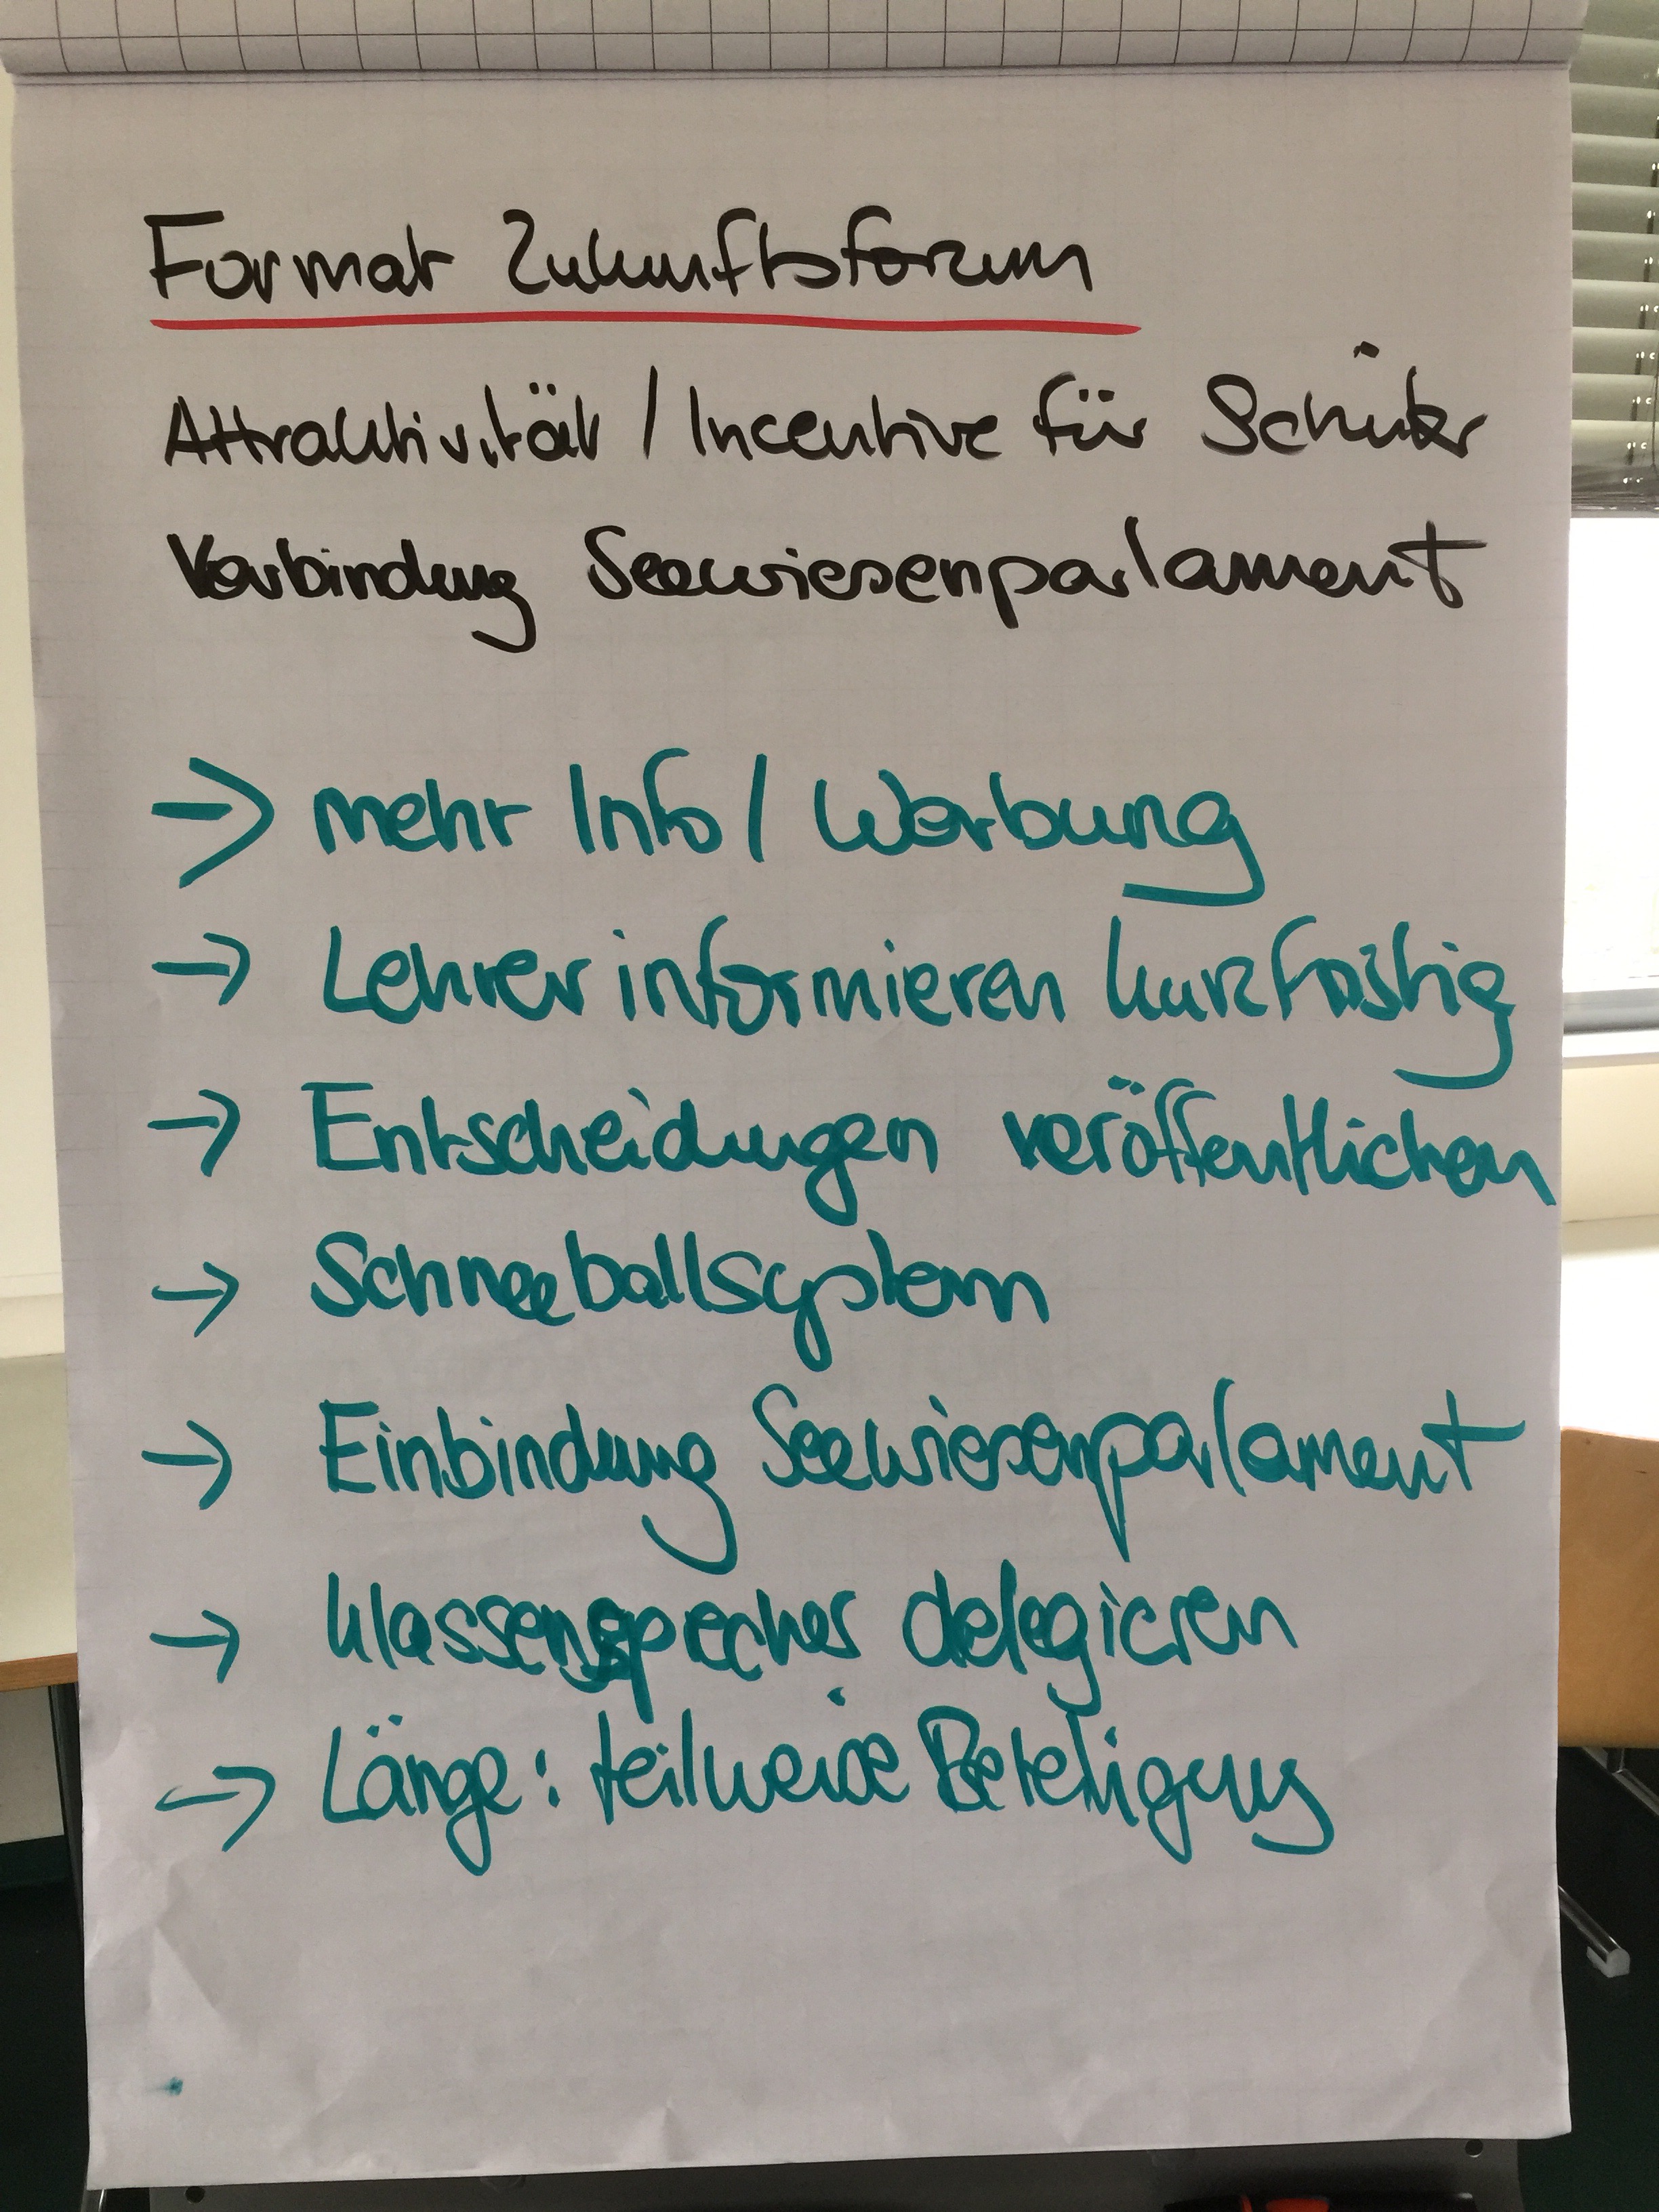 Format Zukunftsforum
Attraktivität / Incentive für Schüler
Verbindung Seewiesenparlament
=> mehr Info / Werbung
→ Lehrer informieren kurzfristig
→ Entscheidungen veröffentlichen
→ Schneeballsystem
→ Einbindung Seewiesenparlament
→ Klassensprecher delegieren
→ Länge: teilweise Beteiligung